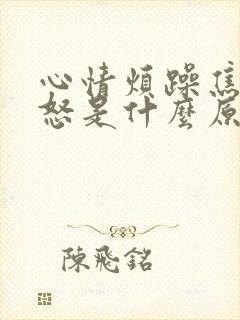 心情煩躁焦
怒是什麼原
陳飛銘